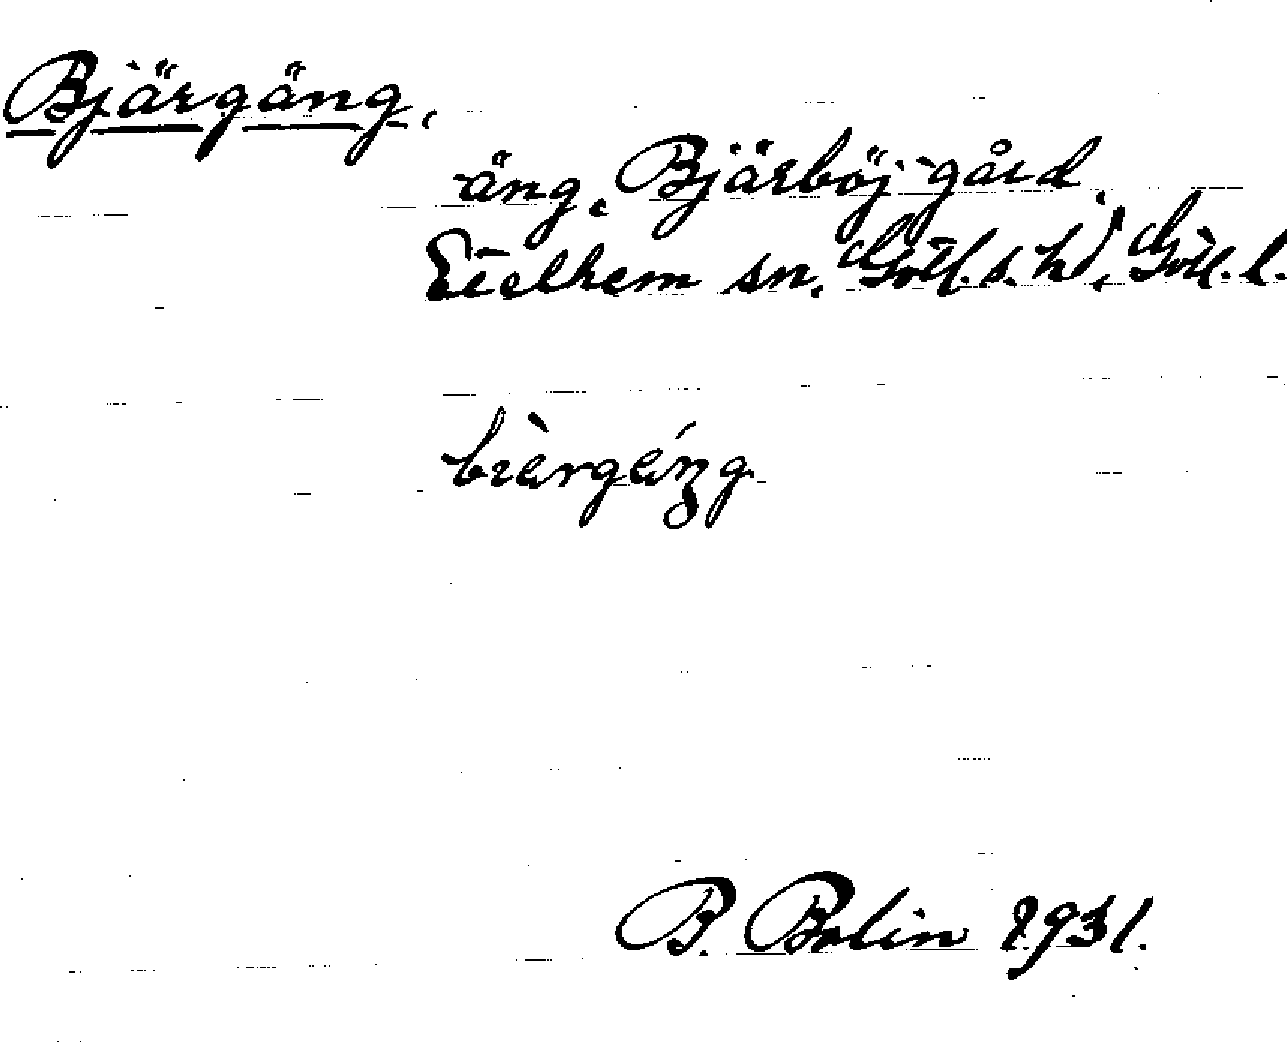 Bjärgäng,
äng, Bjärböj gård,
Etelhem sn, Gotl. s. hd, Gotl. l.
bièrgéŋg
B. Bolin 1931.